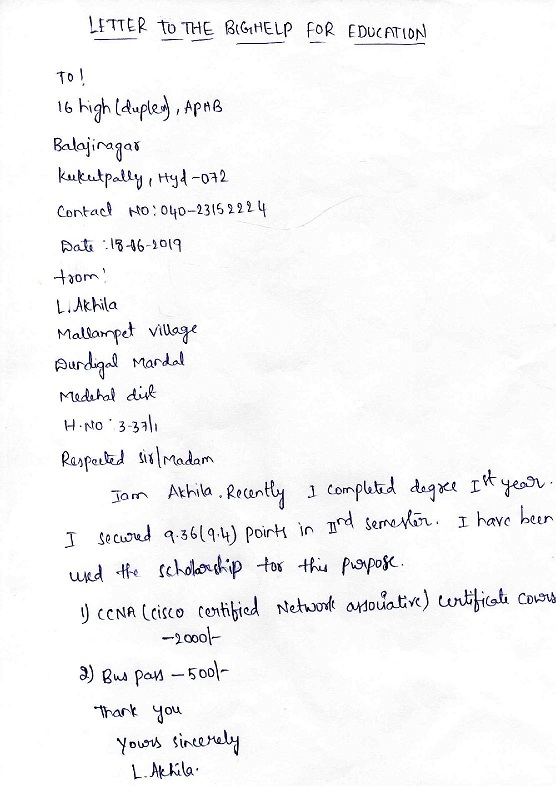 LETTER TO THE BIGHELP FOR EDUCATION
TO!
16 high (duplex), APHB
Balajinagar
Kukutpally, Hyd-072
Contact NO: 040-23152224
Date: 18-06-2019
from!
L. Akhila
Mallampet village
Durdigal Mandal
Medchal dist
H.NO: 3-37/1
Respected Sir/Madam
Iam Akhila. Recently I completed degree Ist year.
I secured 9.36(9.4) points in IInd semester. I have been
used the scholarship for this purpose.
1) CCNA (cisco certified Network associative) certificate cours
-2000/-
2) Bus pass - 500/-
Thank you
Yours sincerely
L. Akhila.